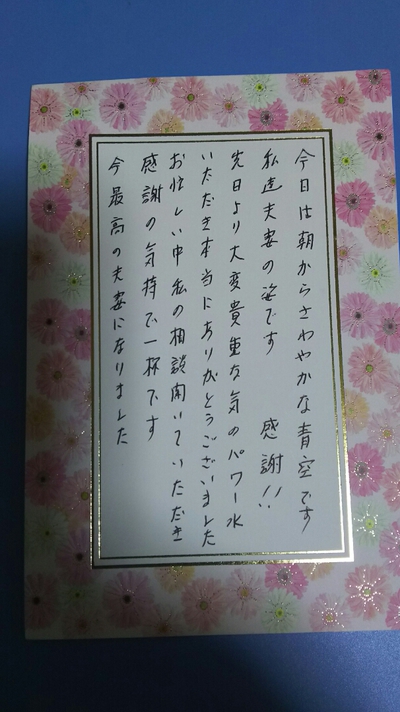 今日は朝からさわやかな青空です
私達夫妻の姿です　感謝!!
先日より大変貴重な気のパワー水
いただき本当にありがとうございました
お忙しい中私の相談聞いていただき
感謝の気持で一杯です
今最高の夫妻になりました